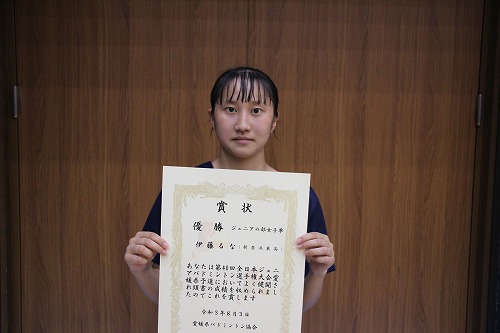 賞状
優勝 ジュニアの部女子単
伊藤るな(新居浜東高)
あなたは第40回全日本ジュニ
アバドミントン選手権大会愛
媛県予選においてよく健闘さ
れ頭書の成績を収められまし
たのでこれを賞します
令和3年8月3日
愛媛県バドミントン協会